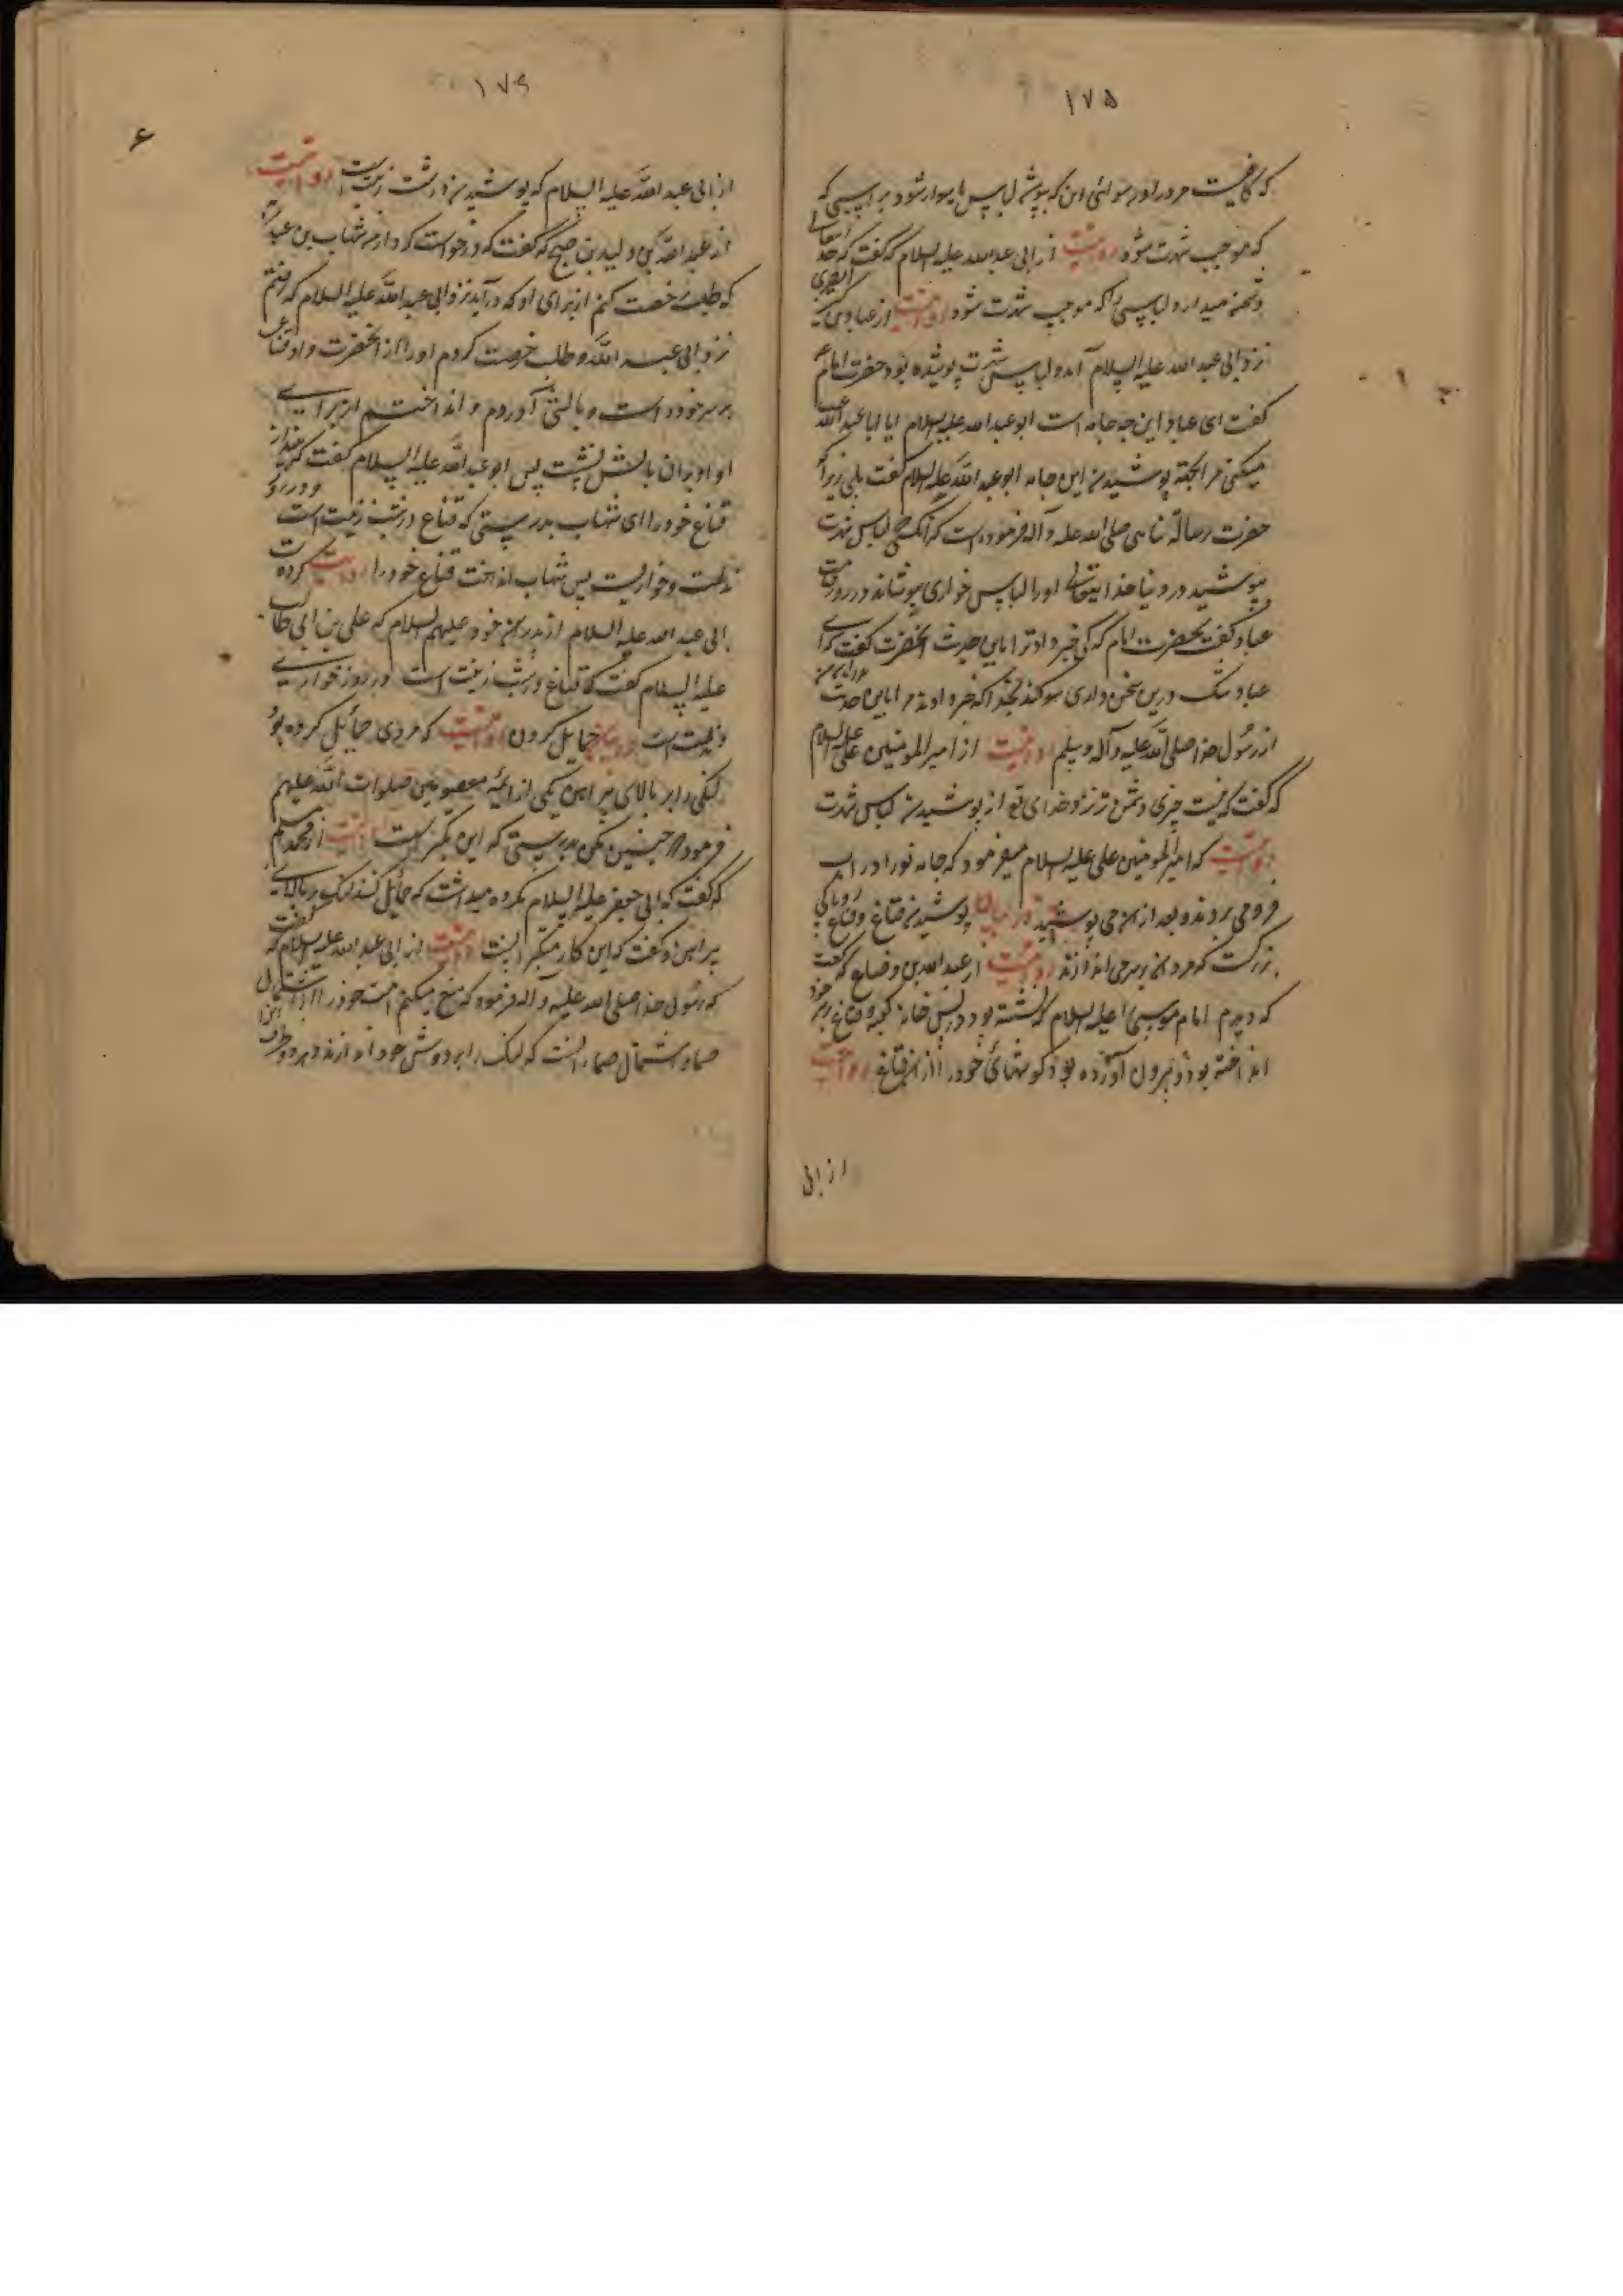 ۱۷۵
که کافیست مر مرد را در رسوائی این که بپوشد لباس یا سوار شود بر اسبی که
که موجب شهرت شود روایتست از ابی عبدالله علیه السلام که گفت که خدا تعالی
دشمن میدارد لباسی را که موجب شهرت شود روایتست از عباد بن کثیر البصری
نزد ابی عبد الله علیه السلام آمد و لباس شهرت پوشیده بود حضرت امام ع
گفت ای عباد این چه جامه است ابو عبدالله علیه السلام ایا ابا عبد الله عیب
میکنی مرا بجهة پوشیدن این جامه ابو عبد الله علیه السلام گفت بلی زیرا که
حضرت رسالة پناهی صلی الله علیه و آله فرموده است که آنکه لباس شهرت
بپوشید در دنیا خدایتعالی او را لباس خواری بپوشاند در روز قیامت
عباد گفت بحضرت امام که کی خبر داد ترا باین حدیث آنحضرت گفت که ای
عباد شک درین سخن داری سوگند بخدا که خبر دادند مرا باین حدیث پدران من
از رسول خدا صلی الله علیه و آله وسلم روایتست از امیر المومنین علی علیه السلام
که گفت که نیست چیزی دشمن تر نزد خدای تع از پوشیدن لباس شهرت
روایتست که امیر المومنین علی علیه السلام میفرمود که جامه نو را در آب
فرو می بردند و بعد از آن می پوشیدند در بیان پوشیدن قناع و قناع روپاکی
بزرگست که مردان بر سر می اندازند روایتست از عبدالله بن وضاح که گفت
که دیدم امام موسی علیه السلام که نشسته بود در پس خانه کعبه و قناع بر سر خود
انداخته بود و بیرون آورده بود گوشهای خود را از آن قناع روایتست
از ابی
۱۷۶
۶
از ابی عبد الله علیه السلام که پوشیدن در شب زینت روایتست
از عبد الله بن ولید بن صبیح که گفت که درخواست کرد از من شهاب بن عبد ربه
که طلب رخصت کنم از برای او که درآید نزد ابی عبد الله علیه السلام که رفتم
نزد ابی عبد الله و طلب رخصت کردم او را از آنحضرت و او قناعی
بر سر خود داشت و بالشی آوردم و انداختم از برای
او او بران بالش نشست پس ابو عبد الله علیه السلام گفت که بینداز
قناع خود را ای شهاب بدرستی که قناع در شب زینت است و در روز
مذلت و خواریست پس شهاب انداخت قناع خود را روایت کرده است
ابی عبدالله علیه السلام از پدران خود علیهم السلام که علی بن ابی طالب
علیه السلام گفت که قناع در شب زینت است و در روز خواری
و مذلتست در بیان حمایل کردن روایتست که مردی حمایل کرده بود
لنگی را بر بالای پیراهن یکی از ائمه معصومین صلوات الله علیهم
فرمود که چنین مکن بدرستی که این تکبر است روایتست از محمد بن مسلم
که گفت که ابی جعفر علیه السلام مکروه میداشت که حمایل کنند لنگ بر بالای
پیراهن و گفت که این کار متکبرانست روایتست از ابی عبدالله علیه السلام که گفت
که رسول خدا صلی الله علیه و آله فرمود که منع میکنم امت خود را از اشتمال
صما و اشتمال صما آنست که لنگ را بر دوش خود اندازند و هر دو طرف